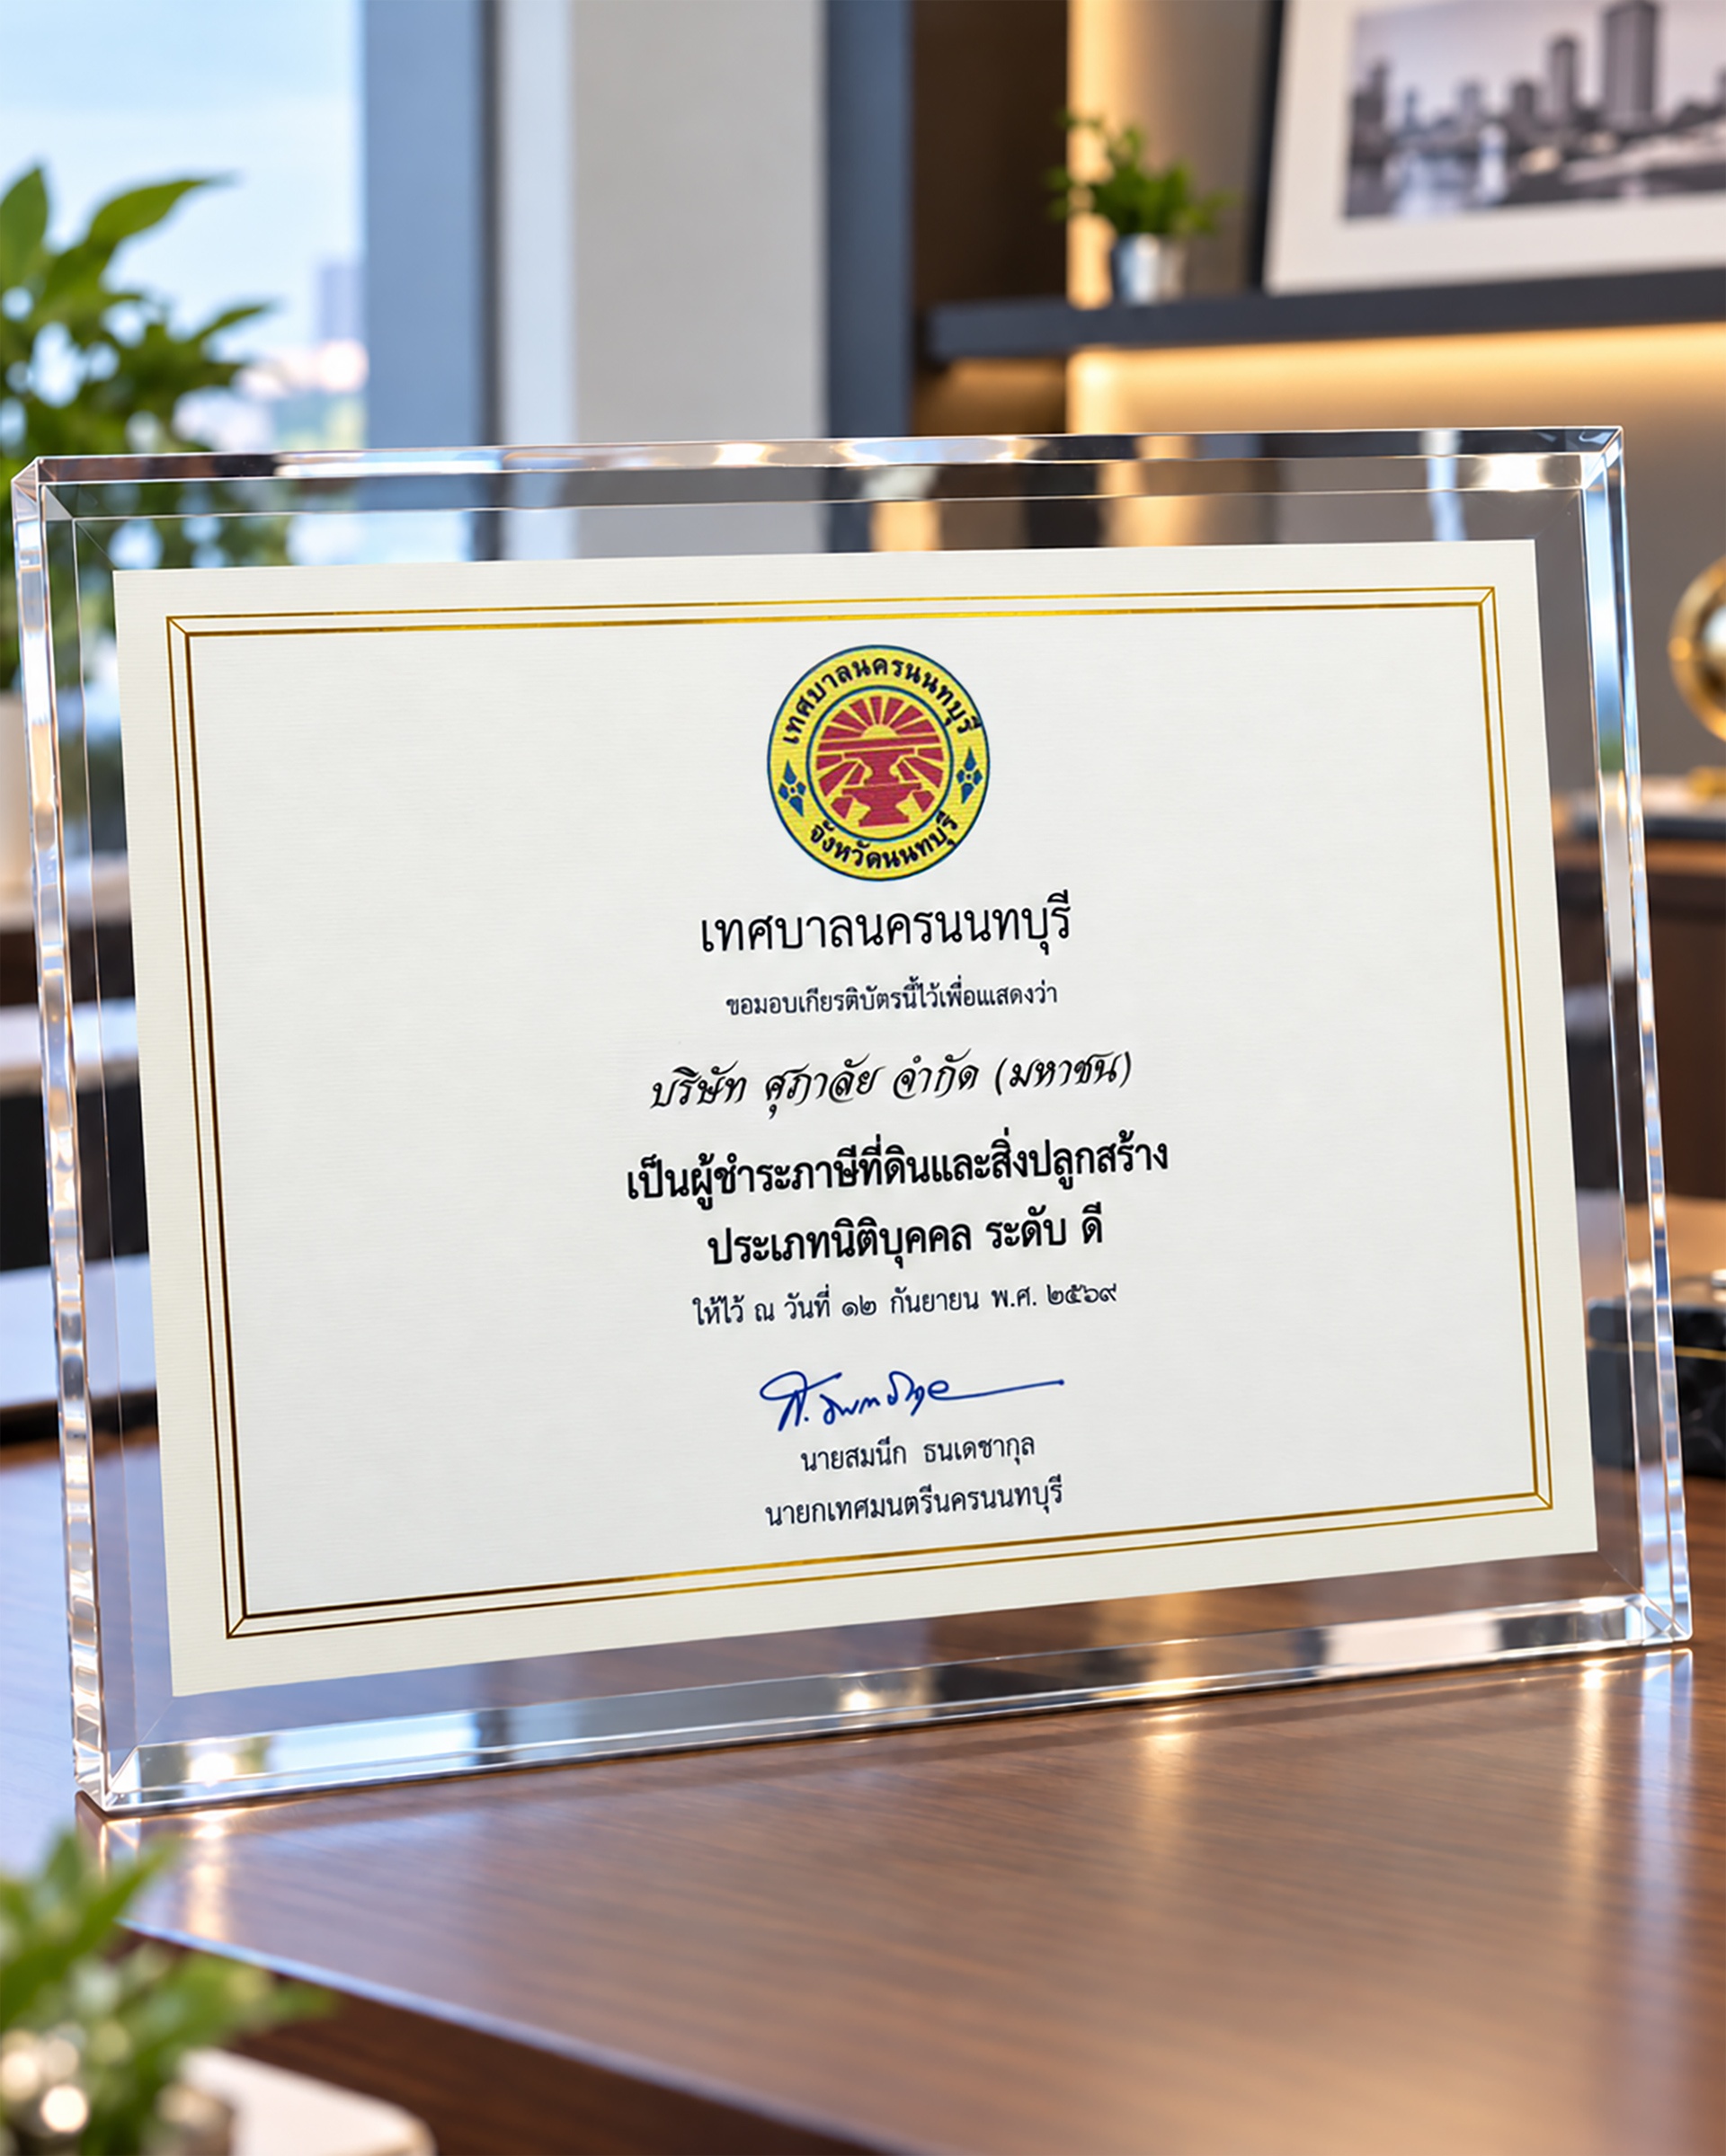 เทศบาลนครนนทบุรี
จังหวัดนนทบุรี
เทศบาลนครนนทบุรี
ขอมอบเกียรติบัตรนี้ไว้เพื่อแสดงว่า
บริษัท ศุภาลัย จำกัด (มหาชน)
เป็นผู้ชำระภาษีที่ดินและสิ่งปลูกสร้าง
ประเภทนิติบุคคล ระดับ ดี
ให้ไว้ ณ วันที่ ๑๒ กันยายน พ.ศ. ๒๕๖๙
นายสมนึก ธนเดชากุล
นายกเทศมนตรีนครนนทบุรี